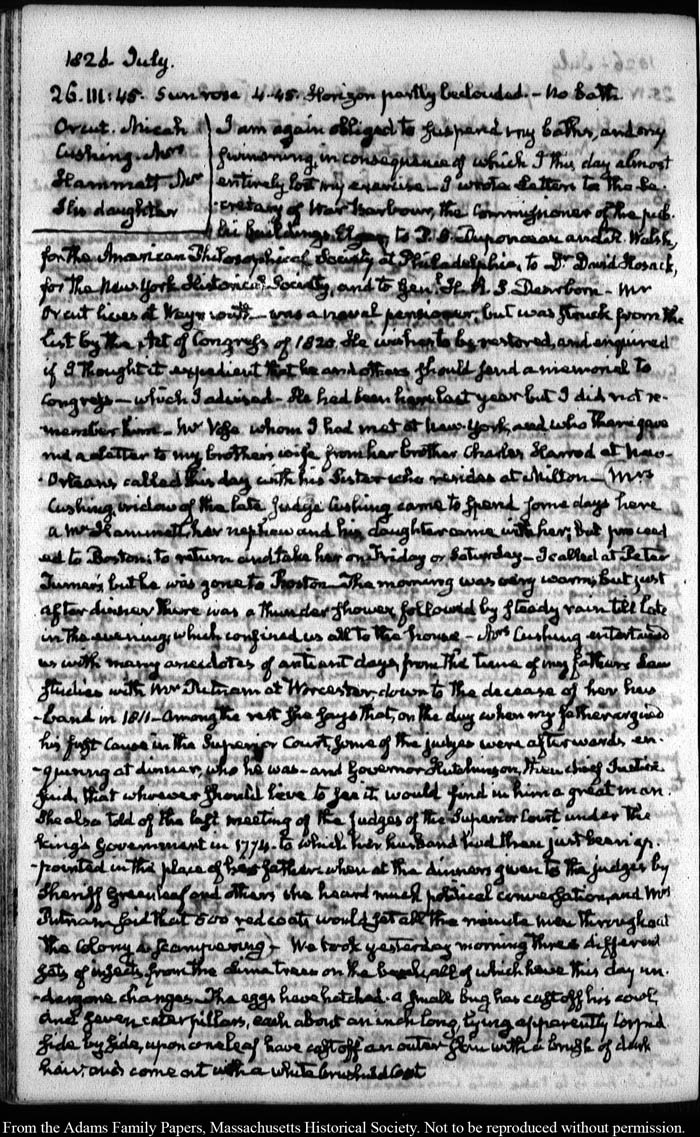 1826 July.
26. III:45. Sun rose 4-45. Horizon partly beclouded. - No bath
Orcut. Micah
Cushing. Mrs
Hammatt Mr
His daughter
I am again obliged to suspend my baths, and my
swimming, in consequence of which I this day almost
entirely lost my exercise - I wrote Letters to the Se-
cretary of War Barbour, the Commissioner of the pub-
lic buildings Elgar, to P. S. Duponceau and R. Walsh,
for the American Philosophical Society at Philadelphia, to Dr. David Hosack,
for the New York Historical Society, and to Genl. H. A. S. Dearborn - Mr
Orcut lives at Weymouth - was a naval pensioner, but was struck from the
list by the Act of Congress of 1820. He wishes to be restored, and enquired
if I thought it expedient that he and others should send a memorial to
Congress - which I advised - He had been here last year but I did not re-
member him - Mr Vose whom I had met at New-York, and who there gave
me a Letter to my brother's wife from her brother Charles Harrod at New-
-Orleans called this day with his Sister who resides at Milton - Mrs
Cushing, widow of the late Judge Cushing came to spend some days here
a Mr Hammatt, her nephew and his daughter came with her; but proceed-
ed to Boston; to return and take her on Friday or Saturday - I called at Peter
Turner's, but he was gone to Boston - The morning was very warm; but just
after dinner there was a thunder shower followed by steady rain till late
in the evening, which confined us all to the house - Mrs Cushing entertained
us with many anecdotes of antient days, from the time of my father's Law
Studies with Mr Putnam at Worcester, down to the decease of her hus
-band in 1811 - Among the rest she says that, on the day when my father argued
his first Cause in the Superior Court, some of the judges were afterwards en-
-quiring at dinner, who he was - and Governor Hutchinson, then chief Justice
said, that whoever should live to see it, would find in him a great man.
She also told of the last meeting of the Judges of the Superior Court under the
King's Government in 1774. to which her husband had then just been ap-
-pointed in the place of his father. when at the dinners given to the judges by
Sheriff Greenleaf and others she heard much political conversation, and Mrs
Putnam said that 500 red coats would set all the minute men throughout
the Colony a scampering - We took yesterday morning three different
sets of insects from the elm trees on the bank, all of which have this day un-
-dergone changes - The eggs have hatched. a small bug has cast off his cowl,
and seven caterpillars, each about an inch long, lying apparently torpid
side by side, upon one leaf have cast off an outer skin with a brush of dark
hair, and come out with a white brushed coat
From the Adams Family Papers, Massachusetts Historical Society. Not to be reproduced without permission.